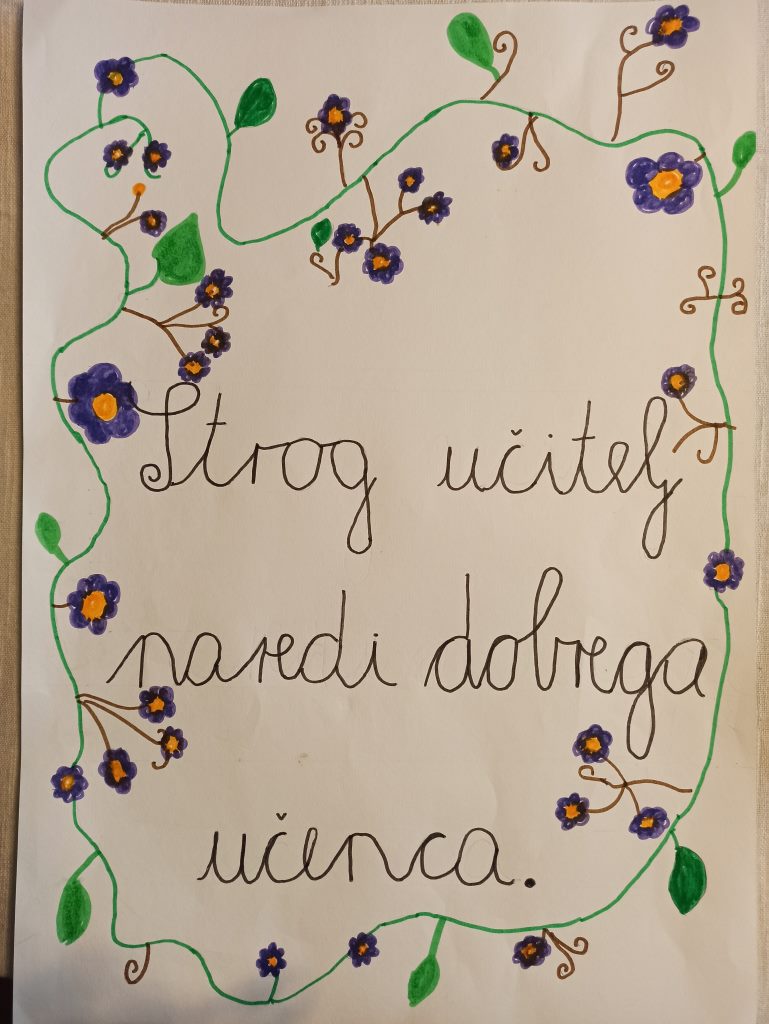 Strog učitelj
naredi dobrega
učenca.